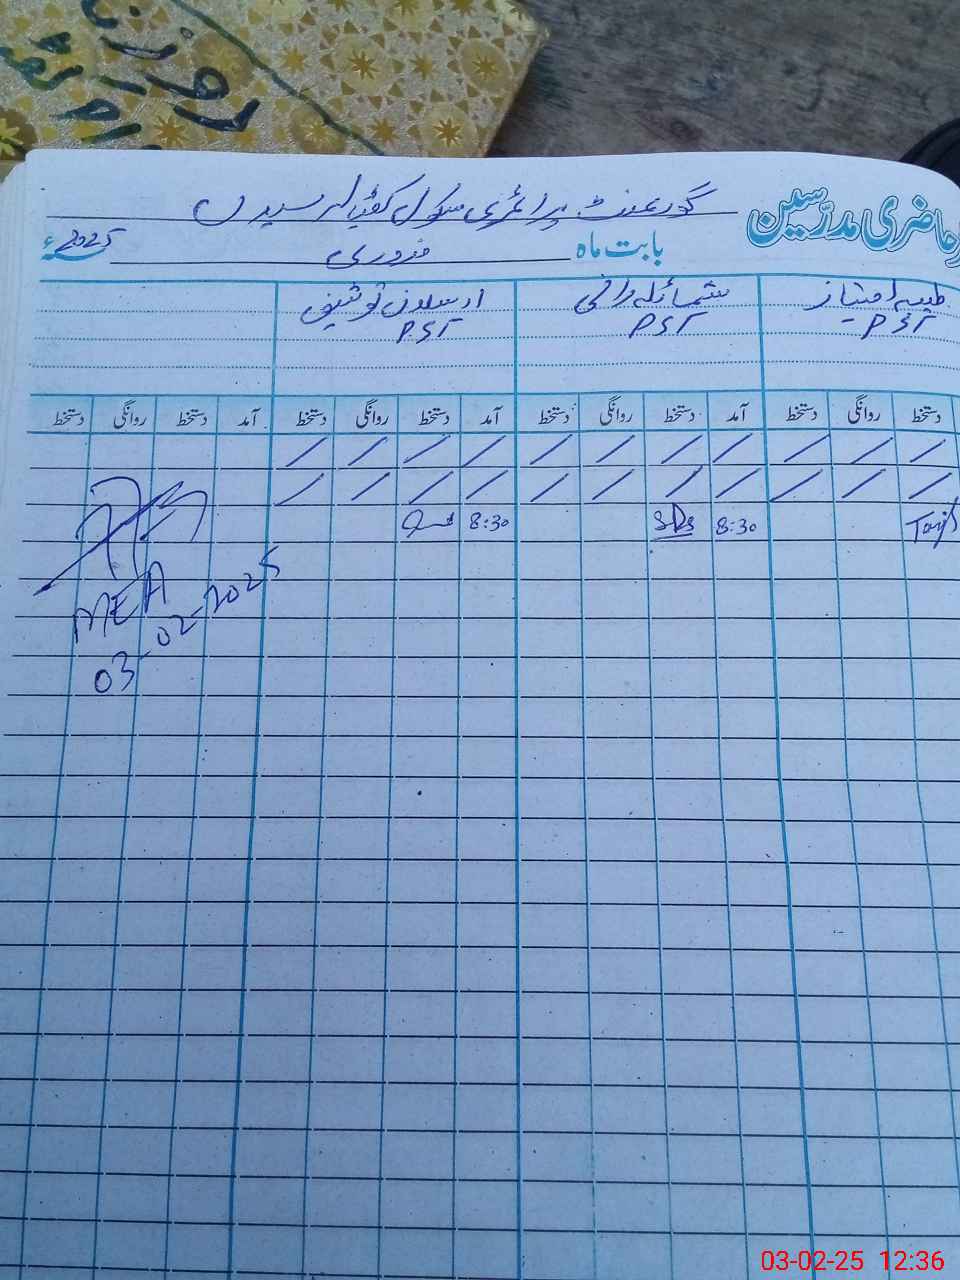 حاضری مدرّسین گورنمنٹ پرائمری سکول سیداں
بابت ماہ فروری 2025ء
طیبہ امتیاز شمائلہ رانی توثیق
PST PST PST
دستخط روانگی دستخط آمد دستخط روانگی دستخط آمد دستخط روانگی دستخط آمد دستخط روانگی دستخط
8:30 8:30
MEA
03-02-2025
03-02-25 12:36